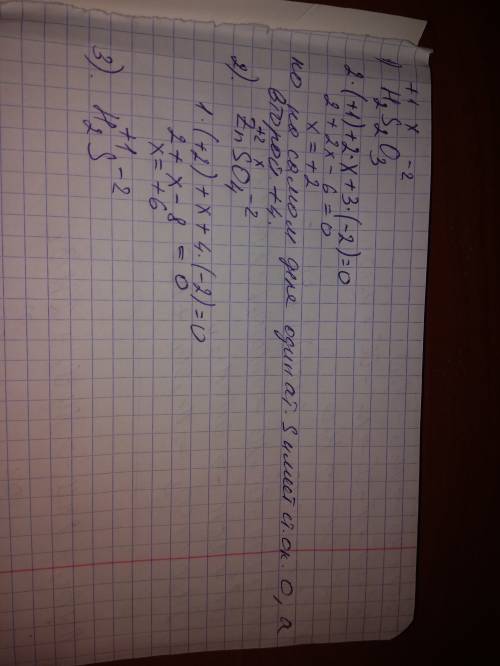 +1 x -2
1) H₂S₂O₃
2·(+1)+2·x+3·(-2)=0
2+2x-6=0
x=+2
но на самом деле один ат. S имеет ст.ок. 0, а
второй +4.
+2 x -2
2). ZnSO₄
1·(+2)+x+4·(-2)=0
2+x-8=0
x=+6
+1 -2
3). H₂S